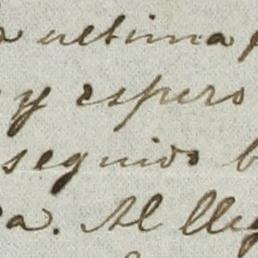 ultima
y espero
seguido
a. Al lle